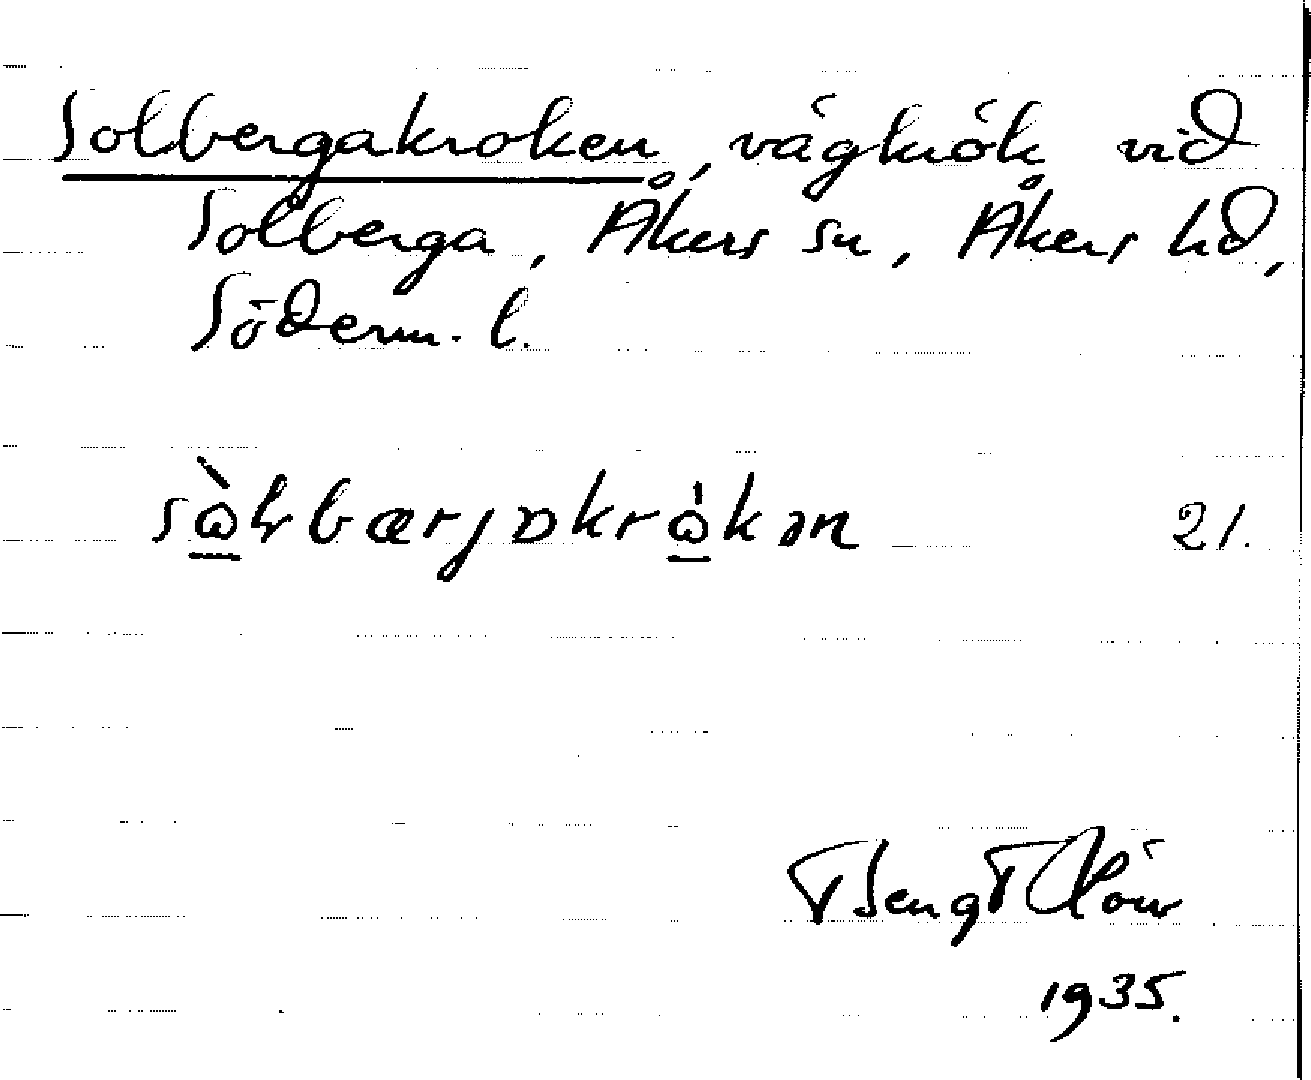 Solbergakroken, vägkrök vid
Solberga, Åkers sn, Åkers hd,
Söderm. l.
sὼlbærjɒkrὼkən 21.
Bengt
1935.